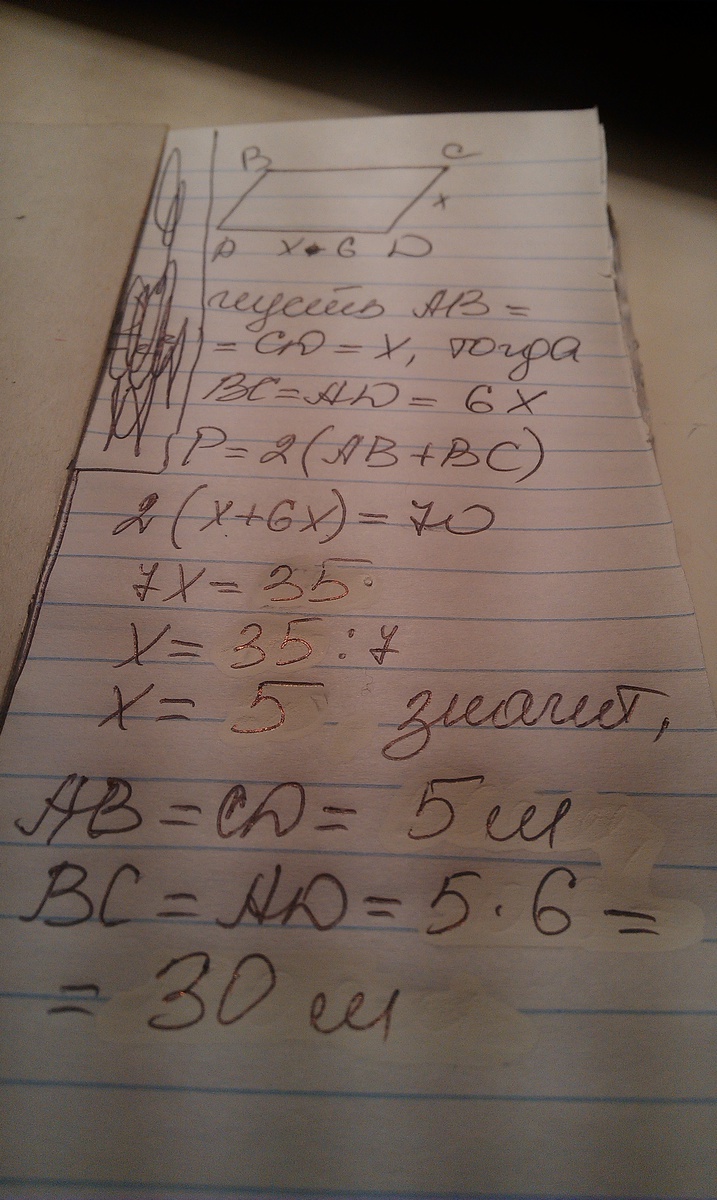 B C
x
A x • 6 D
пусть AB =
= CD = x, тогда
BC = AD = 6x
P = 2(AB + BC)
2(x+6x) = 70
7x = 35
x = 35 : 7
x = 5 значит,
AB = CD = 5 м
BC = AD = 5 · 6 =
= 30 м